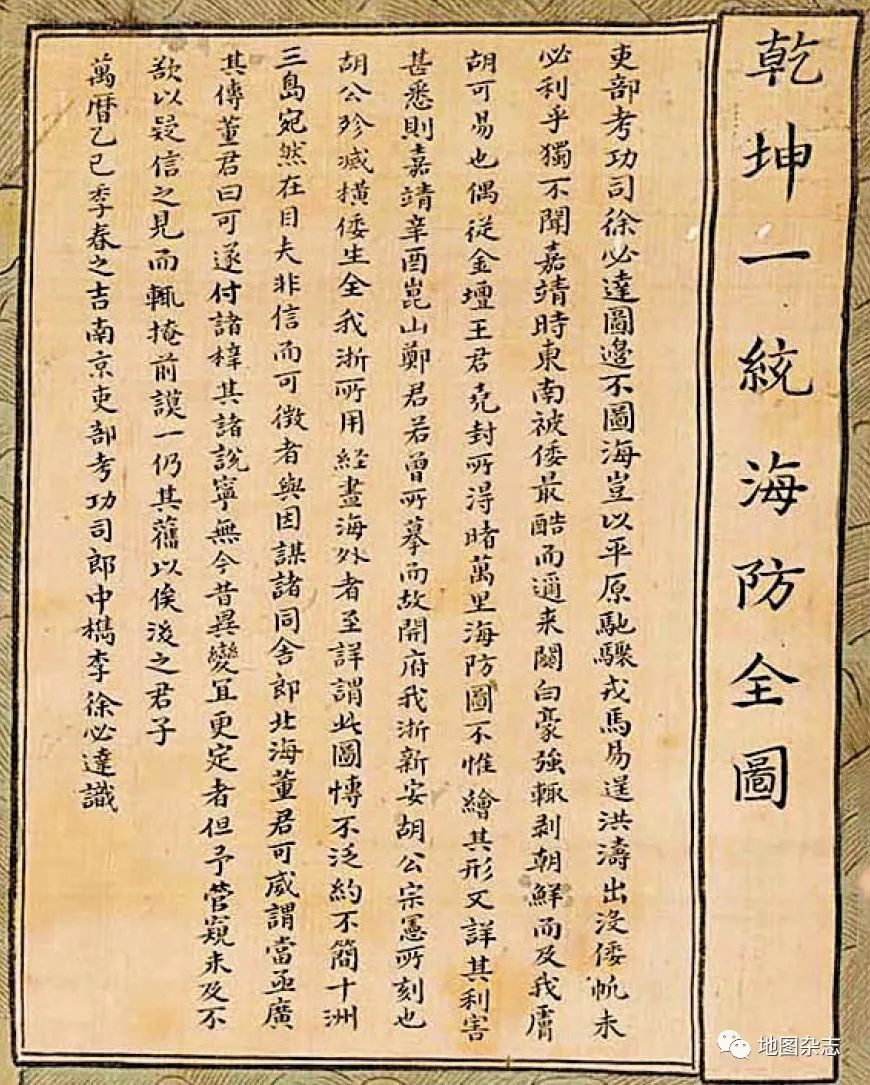 乾坤一統海防全圖
吏部考功司徐必達圖邊不圖海豈以平原馳驟戎馬易逞洪濤出沒倭帆未
必利乎獨不聞嘉靖時東南被倭最酷而邇来關白豪強輒剥朝鮮而及我膚
胡可易也偶從金壇王君尭封所得睹萬里海防圖不惟繪其形又詳其利害
甚悉則嘉靖辛酉崑山鄭君若曾所摹而故開府我浙新安胡公宗憲所刻也
胡公殄滅横倭生全我浙所用経畫海外者至詳謂此圖愽不泛約不簡十洲
三島宛然在目夫非信而可徴者與因謀諸同舍郎北海董君可威謂當亟廣
其傳董君曰可遂付諸梓其諸說寧無今昔異變宜更定者但予管窺未及不
欲以疑信之見而輒掩前謨一仍其舊以俟後之君子
萬曆乙巳季春之吉南京吏部考功司郎中檇李徐必達識
地图杂志